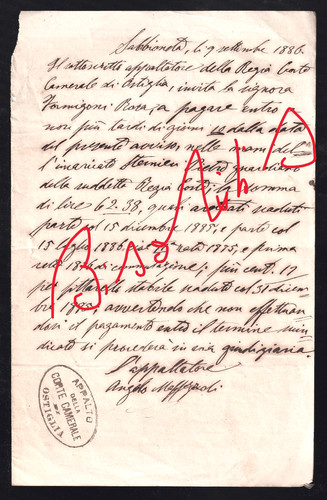 Sabbioneta, li 9 settembre 1886.
Il sottoscritto appaltatore della Regia Corte
Camerale di Ostiglia, invita la signora
Formigoni Rosa, a pagare entro
non più tardi di giorni 10 dalla data
del presente avviso, nelle mani del
l'incaricato Pietro guardiano
della suddetta Regia Corte, la somma
di lire 62.58, quali scaduti
parte col 15 dicembre 1885, e parte col
15 luglio 1886, rata 1875, e prima
rata 1876 di ; più cent. 17
per stabile scaduto col 31 dicem-
bre 1885, avvertendo che non effettuan-
dosi il pagamento entro il termine sum
dicato si procederà in via giudiziaria.
L'appaltatore
Angelo
APPALTO
DELLA
CORTE CAMERALE
DI
OSTIGLIA